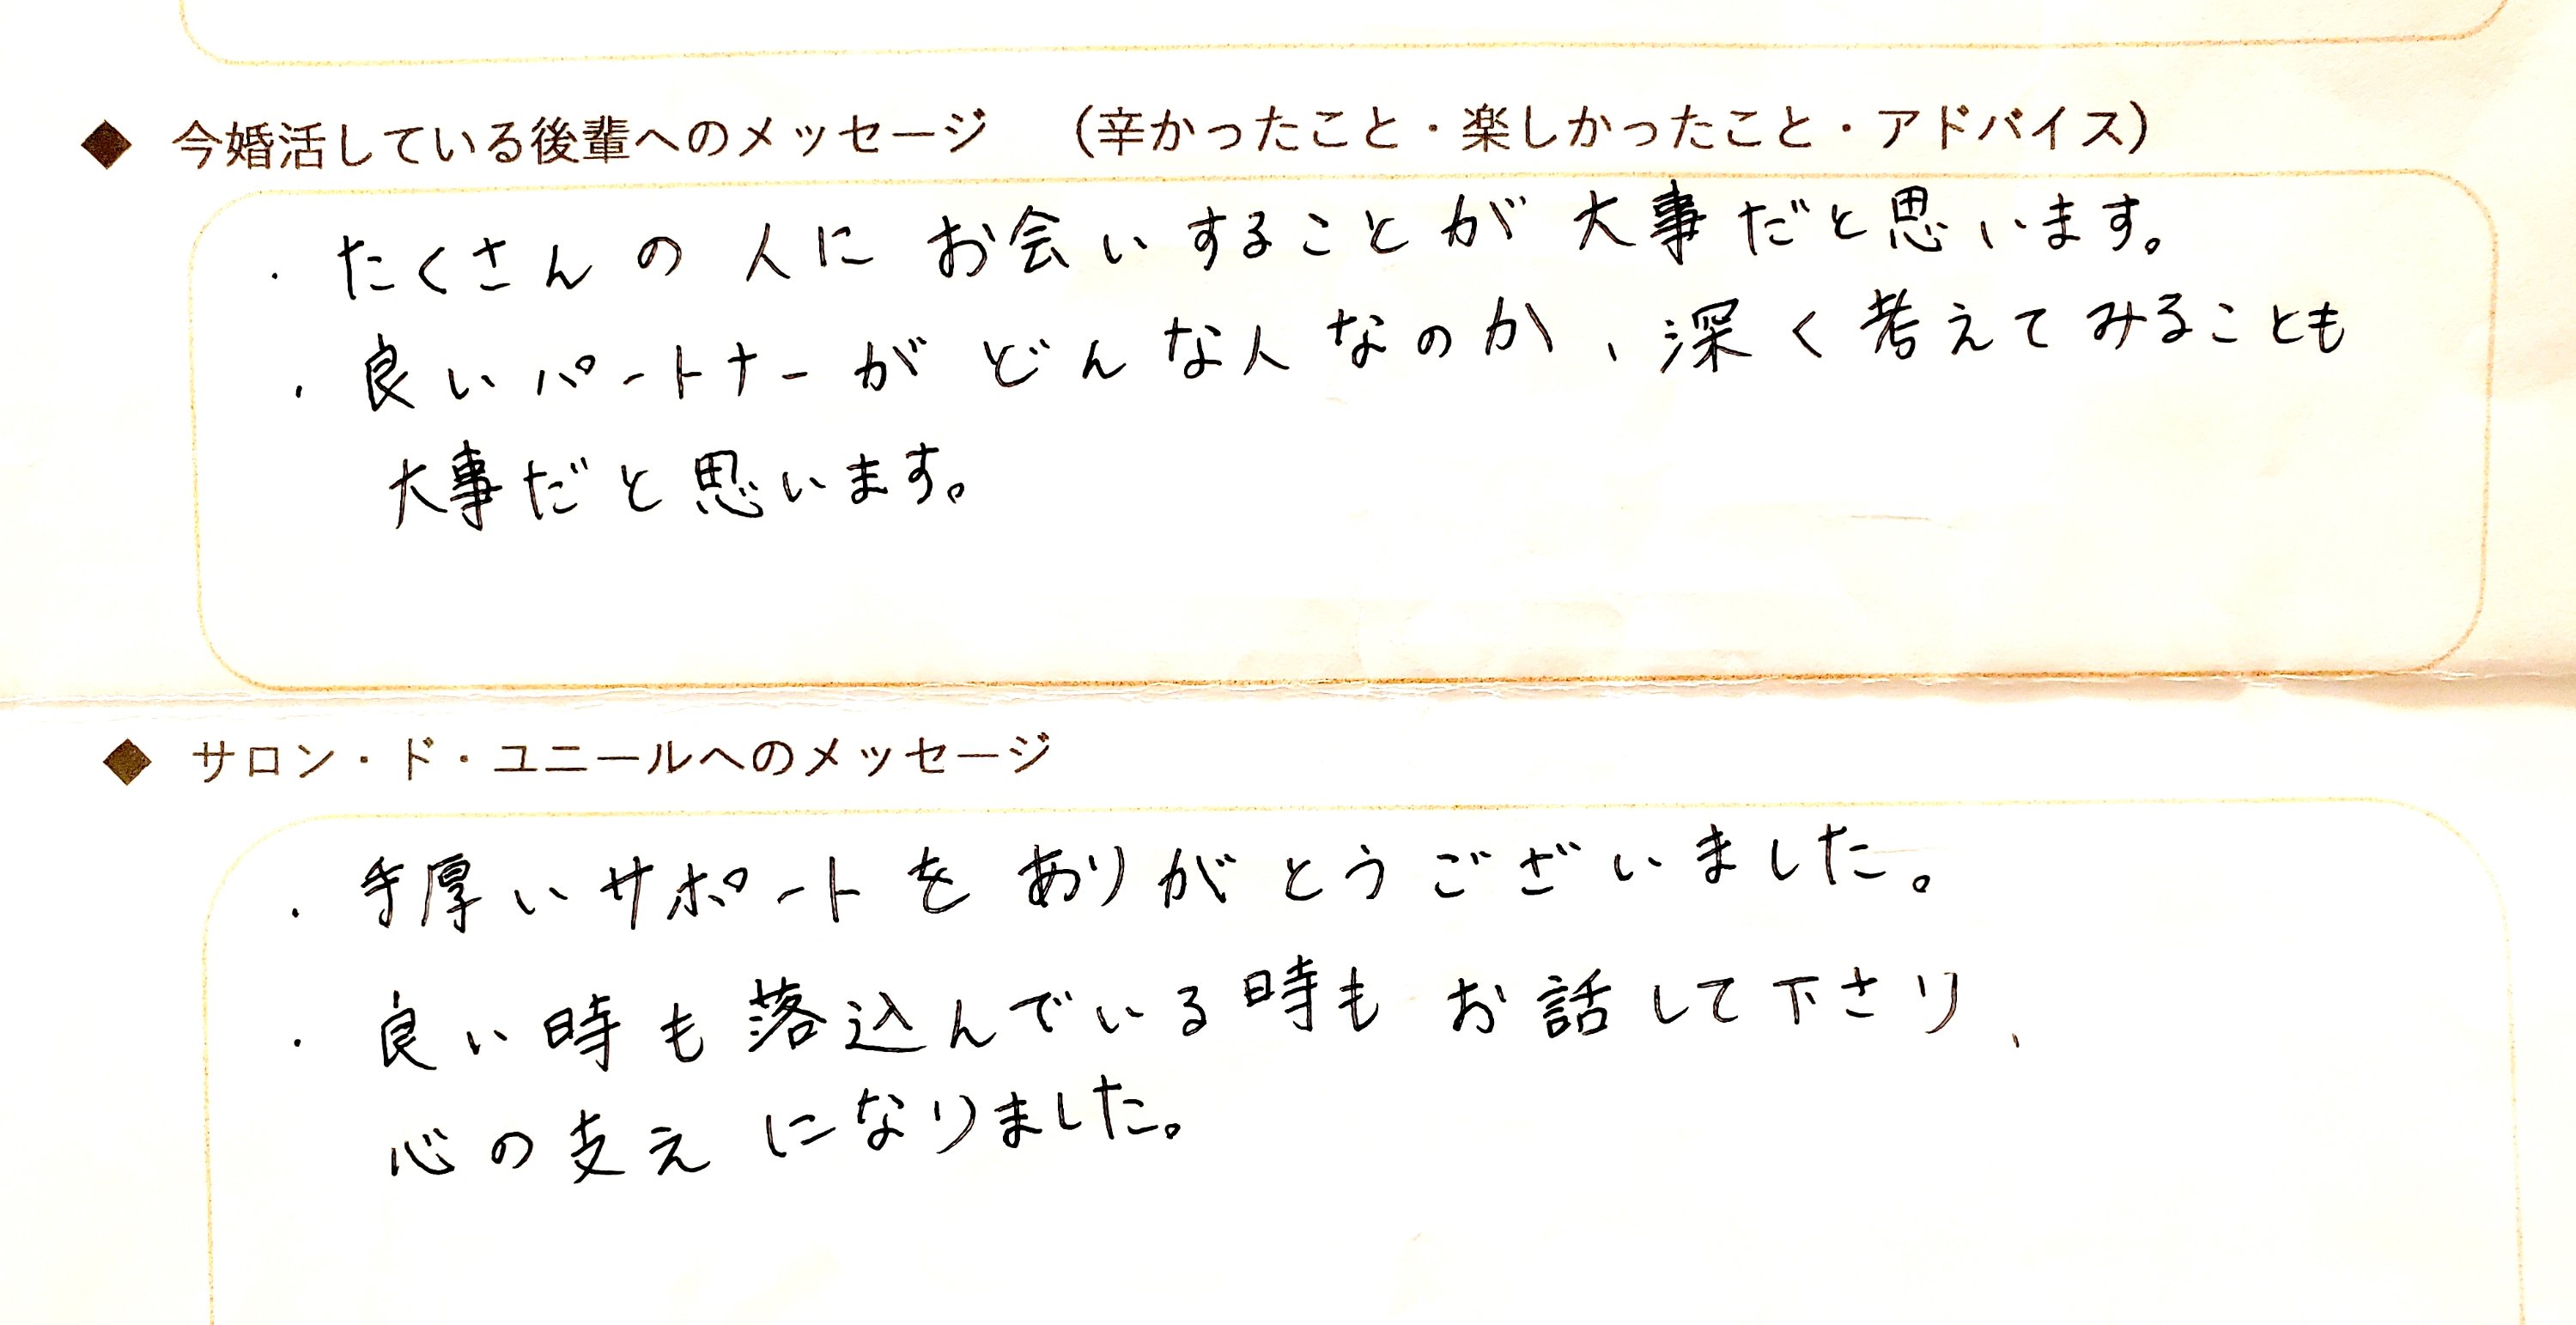 ◆ 今婚活している後輩へのメッセージ （辛かったこと・楽しかったこと・アドバイス）
・たくさんの人にお会いすることが大事だと思います。
・良いパートナーがどんな人なのか、深く考えてみることも
大事だと思います。
◆ サロン・ド・ユニールへのメッセージ
・手厚いサポートをありがとうございました。
・良い時も落込んでいる時もお話して下さり、
心の支えになりました。